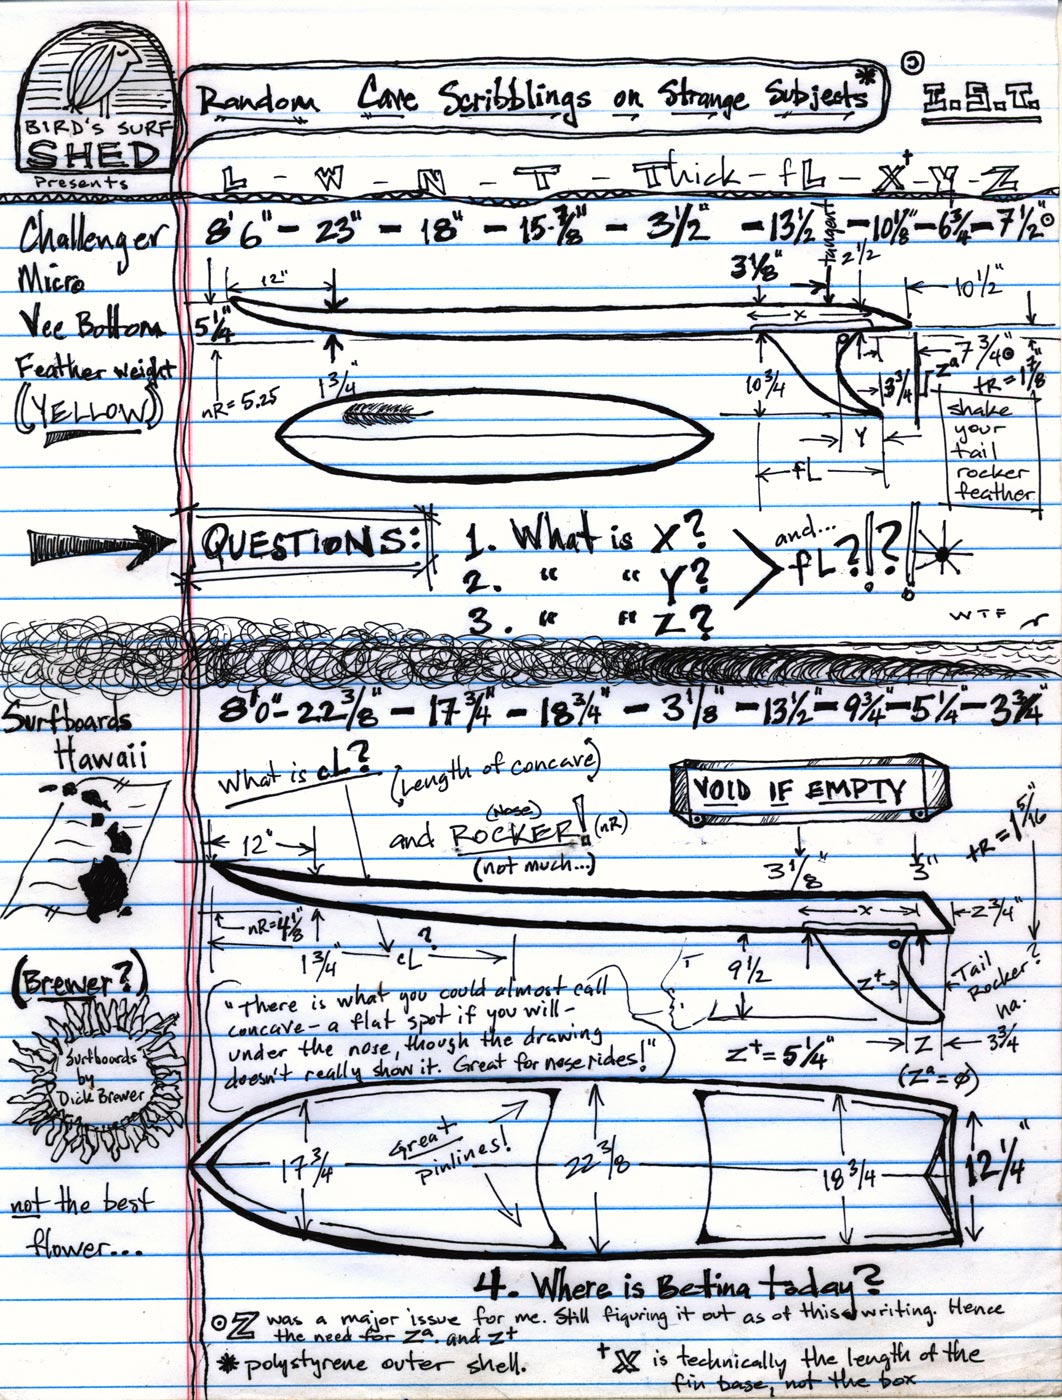 BIRD'S SURF
SHED
Presents
Random Cave Scribblings on Strange Subjects*
©
I.S.T.
L - W - N - T - Thick - fL - X† - Y - Z
Challenger
Micro
Vee Bottom
Feather weight
(YELLOW)
8'6" - 23" - 18" - 15-7/8" - 3 1/2" - 13 1/2 - 10 1/8 - 6 3/4 - 7 1/2"⊙
12"
3 1/8"
tangent
2 1/2
10 1/2"
5 1/4"
X
nR = 5.25
1 3/4"
10 3/4
3 3/4
Zª 7 3/4"⊙
tR = 1 7/8"
Y
fL
shake
your
tail
rocker
feather
QUESTIONS:
1. What is X?
2. " " Y?
3. " " Z?
and...
fL??!!
WTF
Surfboards
Hawaii
8'0" - 22 3/8" - 17 3/4" - 18 3/4" - 3 1/8" - 13 1/2" - 9 3/4" - 5 1/4" - 3 3/4"
What is cL? (Length of concave)
and ROCKER! (nR)
(Nose)
(not much...)
VOID IF EMPTY
tR = 1 5/16"
12"
3 1/8"
3"
X
2 3/4"
nR = 4 1/8"
1 3/4"
cL?
9 1/2
Z+
Tail
Rocker?
ha.
Z
3 3/4
Z+ = 5 1/4"
(Zª = ∅)
(Brewer?)
Surfboards
by
Dick Brewer
not the best
flower...
"There is what you could almost call
concave - a flat spot if you will -
under the nose, though the drawing
doesn't really show it. Great for noserides!"
17 3/4
Great
pinlines!
22 3/8
18 3/4
12 1/4"
4. Where is Betina today?
⊙Z was a major issue for me. Still figuring it out as of this writing. Hence
the need for Zª. and Z+
* polystyrene outer shell.
†X is technically the length of the
fin base, not the box